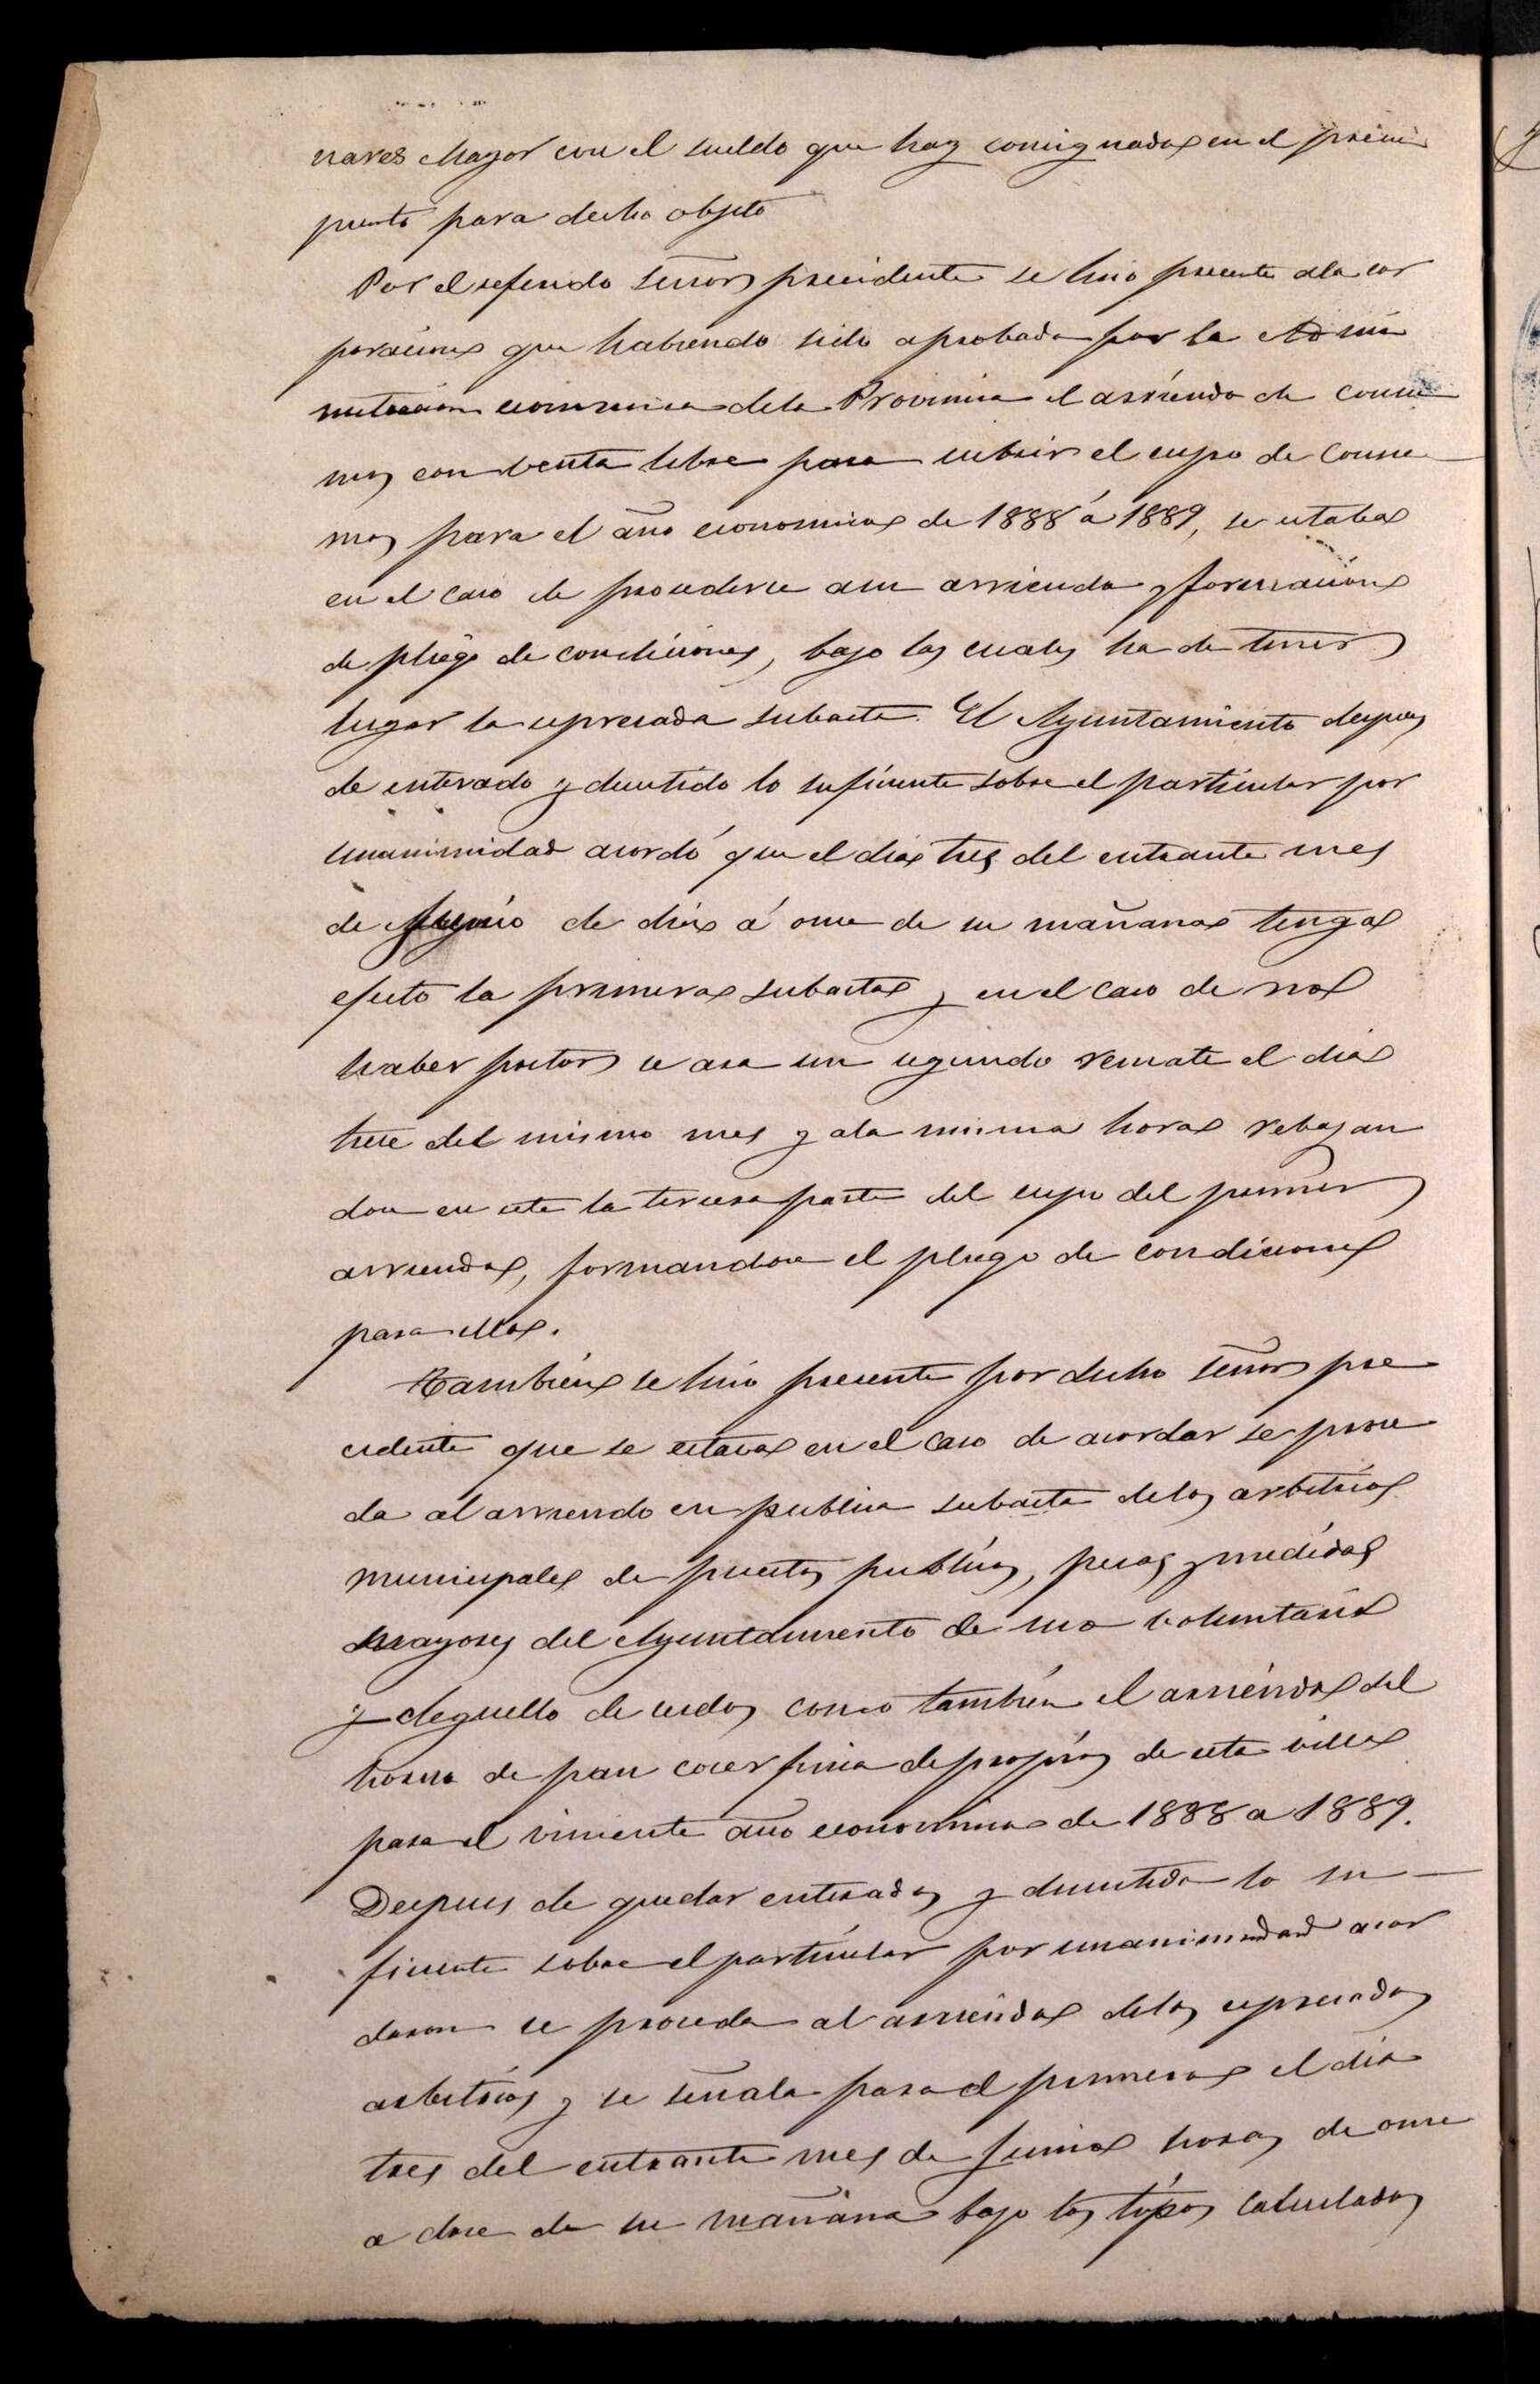 nares Mayor con el sueldo que hay consignado en el presu
puesto para decho objeto
Por el referido señor presidente se hiso presente ala cor
poracion que habiendo sido aprobada por la Admi
nistracion economica dela Provincia el arriendo de consu
mos con venta libre para cubrir el cupo de Consu
mos para el año economico de 1888 á 1889, se estaba
en el caso de procederse asu arriendo y formacion
de pliego de condiciones, bajo las cuales ha de tener
lugar la espresada subasta. El Ayuntamiento despues
de enterado y discutido lo suficiente sobre el particular por
unanimidad acordó que el dia tres del entrante mes
de Junio de dies á once de su mañana tenga
efecto la primera subasta y en el caso de no
haber postor se asa un segundo remate el dia
trece del mismo mes y ala misma hora rebajan
dose en este la tercera parte del cupo del primer
arriendo, formandose el pliego de condiciones
para ello.
Tambien se hiso presente por dicho señor pre
cidente que se estava en el caso de acordar se proce
da al arriendo en publica subasta delos arbitrios
municipales de puestos publicos, pesas y medidas
mayores del Ayuntamiento de uso voluntario
y deguello de cerdos como tambien el arriendo del
horno de pan cocer finca de propios de esta villa
para el viniente año economico de 1888 a 1889.
Despues de quedar enterados y discutido lo su
ficiente sobre el particular por unanimidad acor
daron se proceda al arriendo delos espresados
arbitrios y se señala para el primero el dia
tres del entrante mes de Junio horas de once
a doce de su mañana bajo los tipos calculados